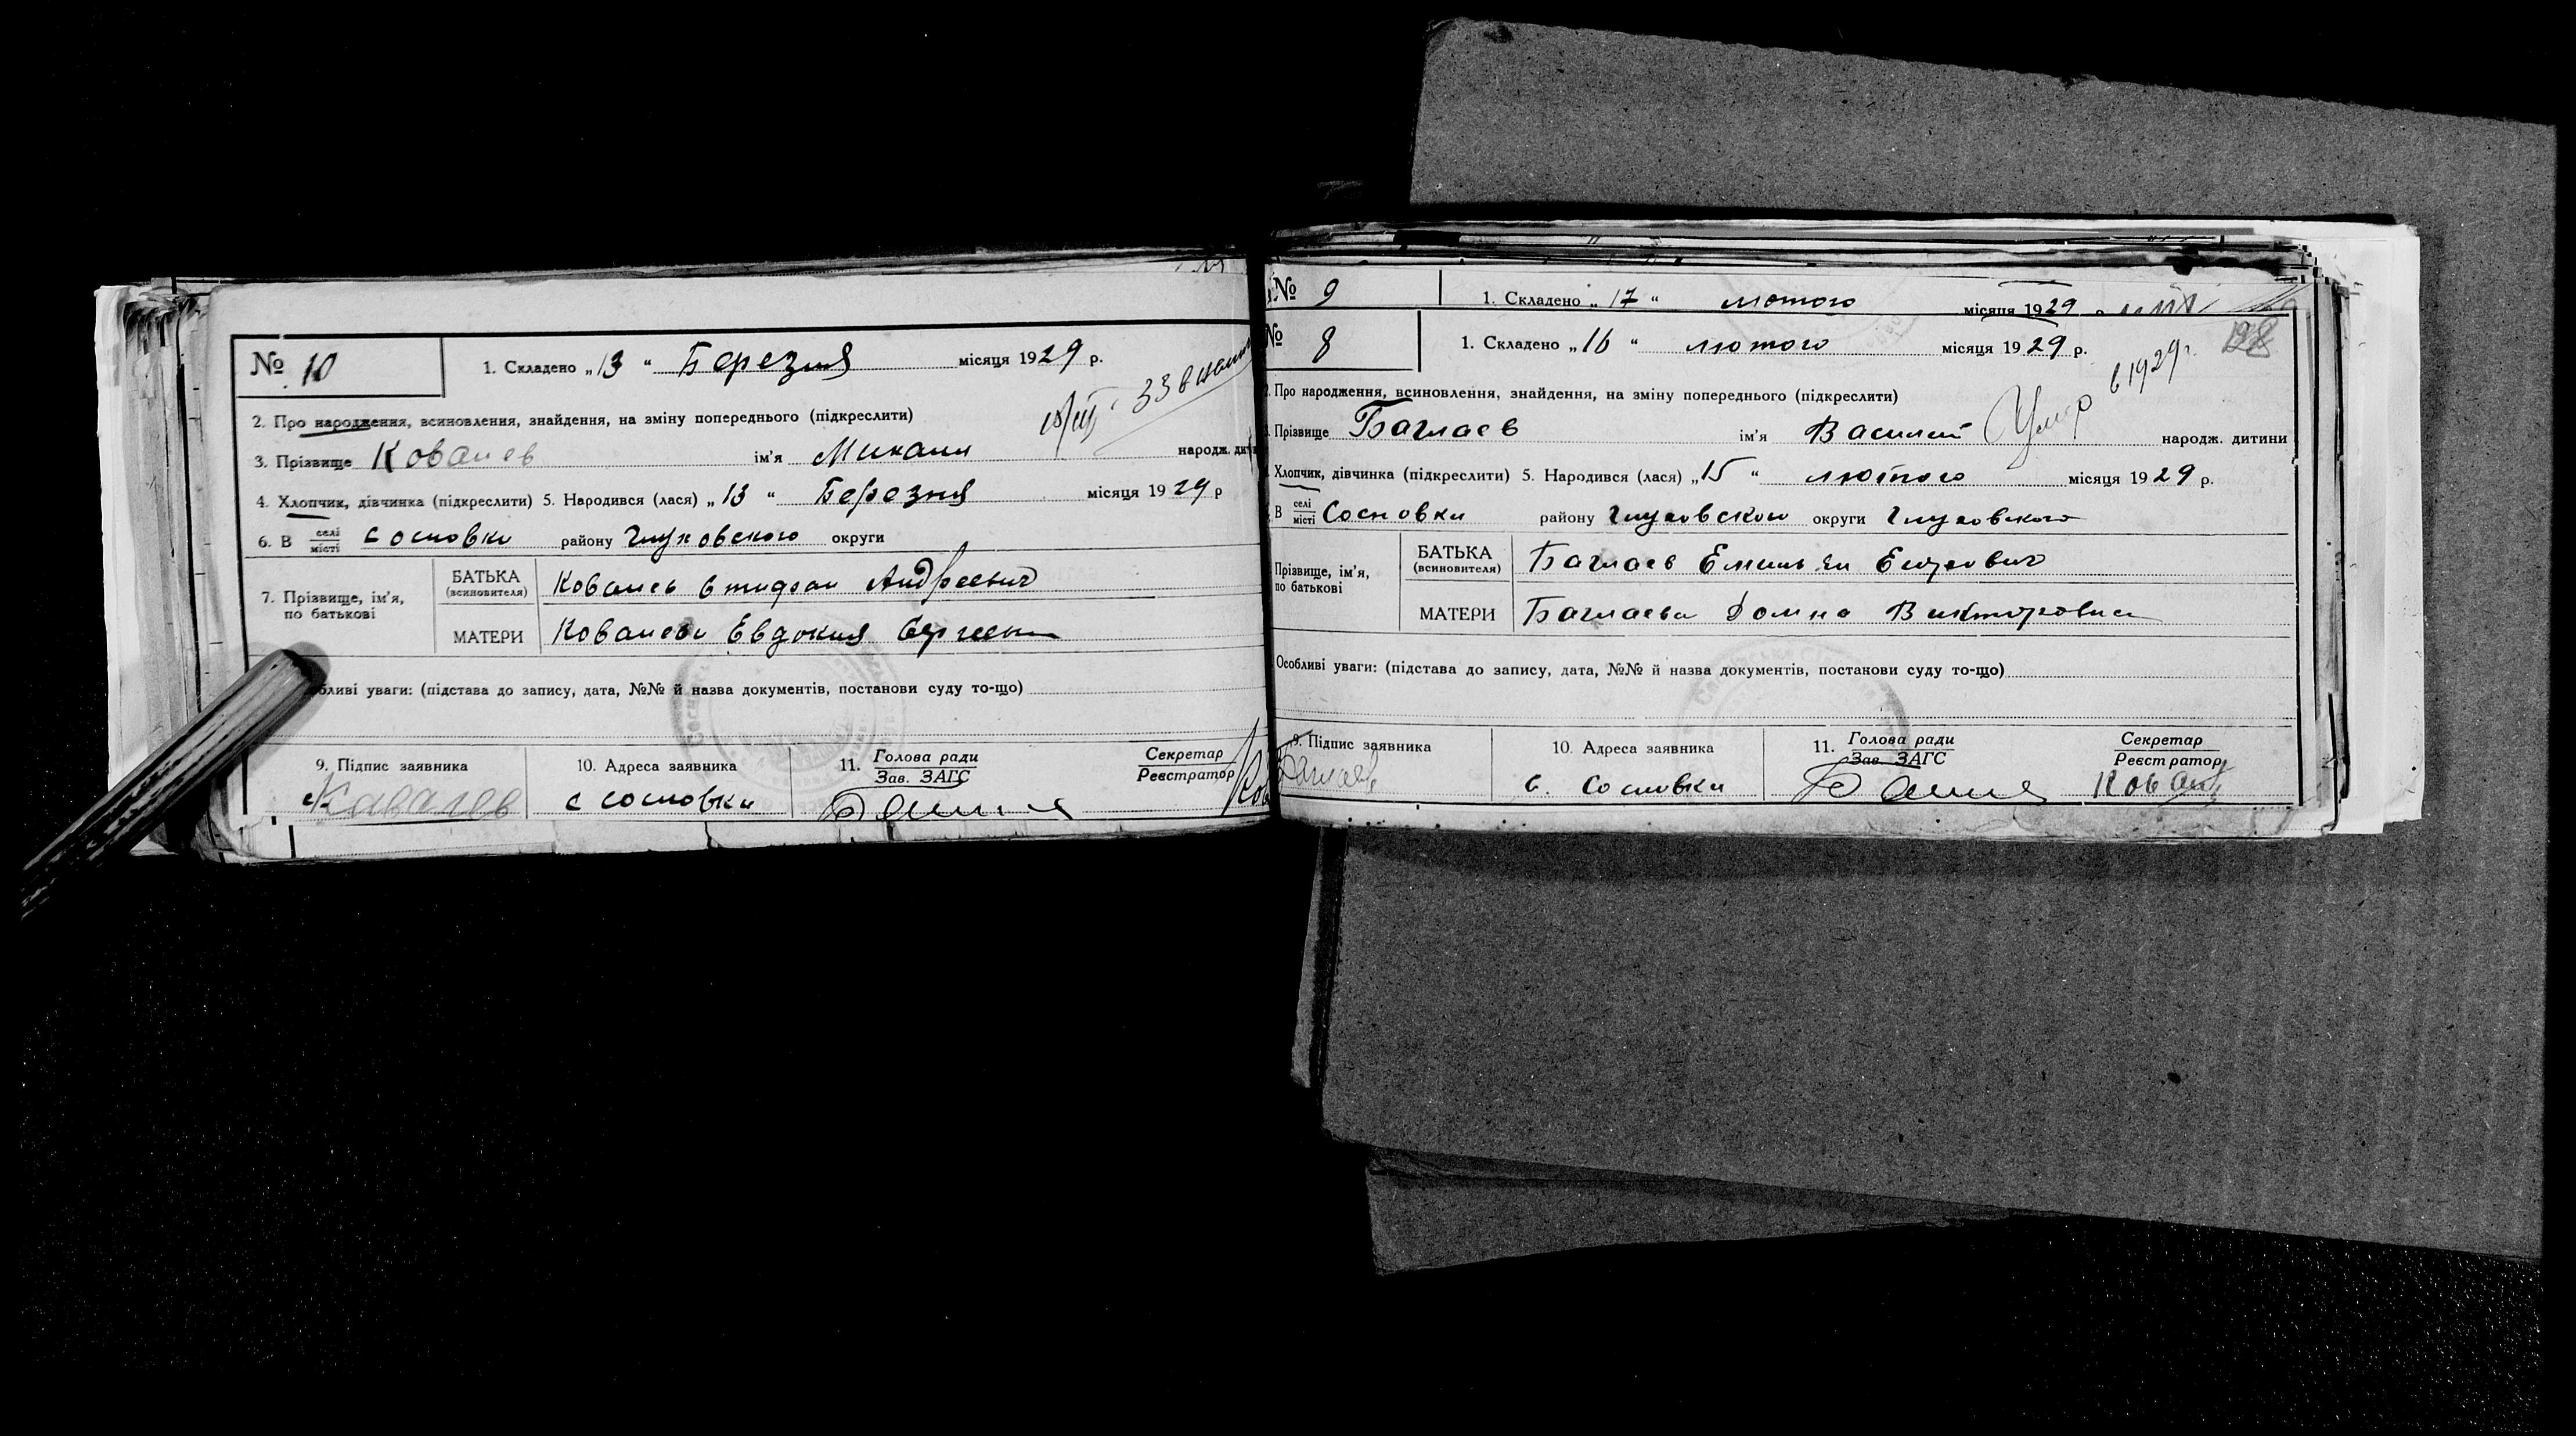 № 10
1. Складено „13 “ Березня місяця 1929 р.
2. Про народження, всиновлення, знайдення, на зміну попереднього (підкреслити)
3. Прізвище Ковалев ім'я Михаил народж.
4. Хлопчик, дівчинка (підкреслити) 5. Народився (лася) „13 “ Березня місяця 1929 р
6. В селі місті Сосновки району Глуховского округи
7. Прізвище, ім'я, по батькові
БАТЬКА (всиновителя) Ковалев Андреевич
МАТЕРИ Ковалева Евдокия Сергеевна
уваги: (підстава до запису, дата, №№ й назва документів, постанови суду то-що)
9. Підпис заявника
Ковалев
10. Адреса заявника
с Сосновки
11. Голова ради
Зав. ЗАГС
Секретар
Реєстратор
№ 9
1. Складено „ 17 “ лютого місяця 1929
№ 8
1. Складено „16 “ лютого місяця 1929 р.
128
Умер в 1929 г.
Про народження, всиновлення, знайдення, на зміну попереднього (підкреслити)
Прізвище Баглаев ім'я Василий народж. дитини
Хлопчик, дівчинка (підкреслити) 5. Народився (лася) „15 “ лютого місяця 1929 р.
В селі місті Сосновки району Глуховского округи Глуховского
Прізвище, ім'я, по батькові
БАТЬКА (всиновителя) Баглаев Емильян
МАТЕРИ Баглаева Домна Викторовна
Особливі уваги: (підстава до запису, дата, №№ й назва документів, постанови суду то-що)
9. Підпис заявника
Баглаев
10. Адреса заявника
с. Сосновки
11. Голова ради
Зав. ЗАГС
Секретар
Реєстратор